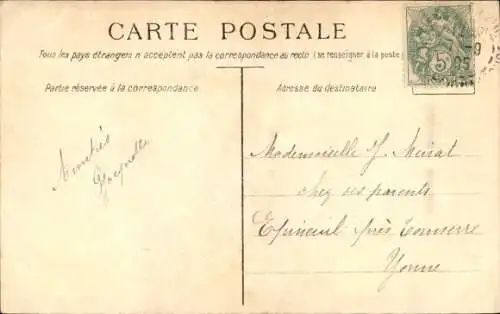 CARTE POSTALE
Tous les pays étrangers n'acceptent pas la correspondance au recto (se renseigner à la poste
Partie réservée à la correspondance
Adresse du destinataire
5
Amitiés
Mademoiselle J. Meirat
chez ses parents
Epineuil près Tonnerre
Yonne